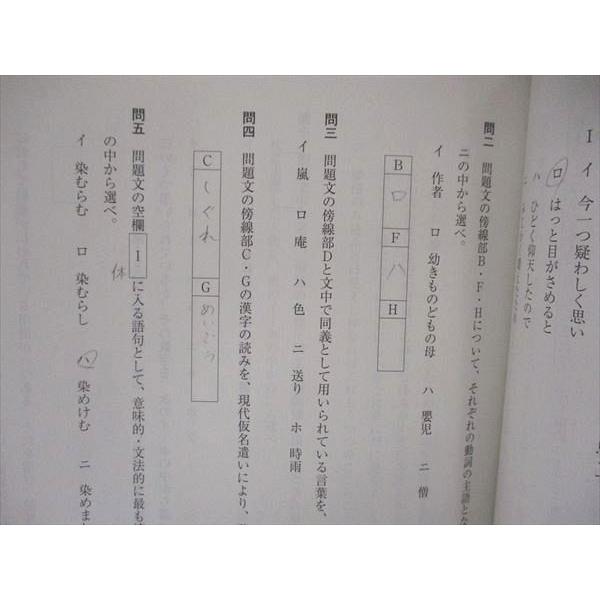 I イ 今一つ疑わしく思い
ロ はっと目がさめると
ハ ひどく仰天したので
問二 問題文の傍線部B・F・Hについて、それぞれの動詞の主語とな
ニの中から選べ。
イ 作者 ロ 幼きものどもの母 ハ 嬰児 ニ 僧
B ロ F ハ H
問三 問題文の傍線部Dと文中で同義として用いられている言葉を、
イ 嵐 ロ 庵 ハ 色 ニ 送り ホ 時雨
問四 問題文の傍線部C・Gの漢字の読みを、現代仮名遣いにより、
C しぐれ G めいどう
問五 問題文の空欄 I に入る語句として、意味的・文法的に最も
体
の中から選べ。
イ 染むらむ ロ 染むらし ハ 染めけむ ニ 染めま